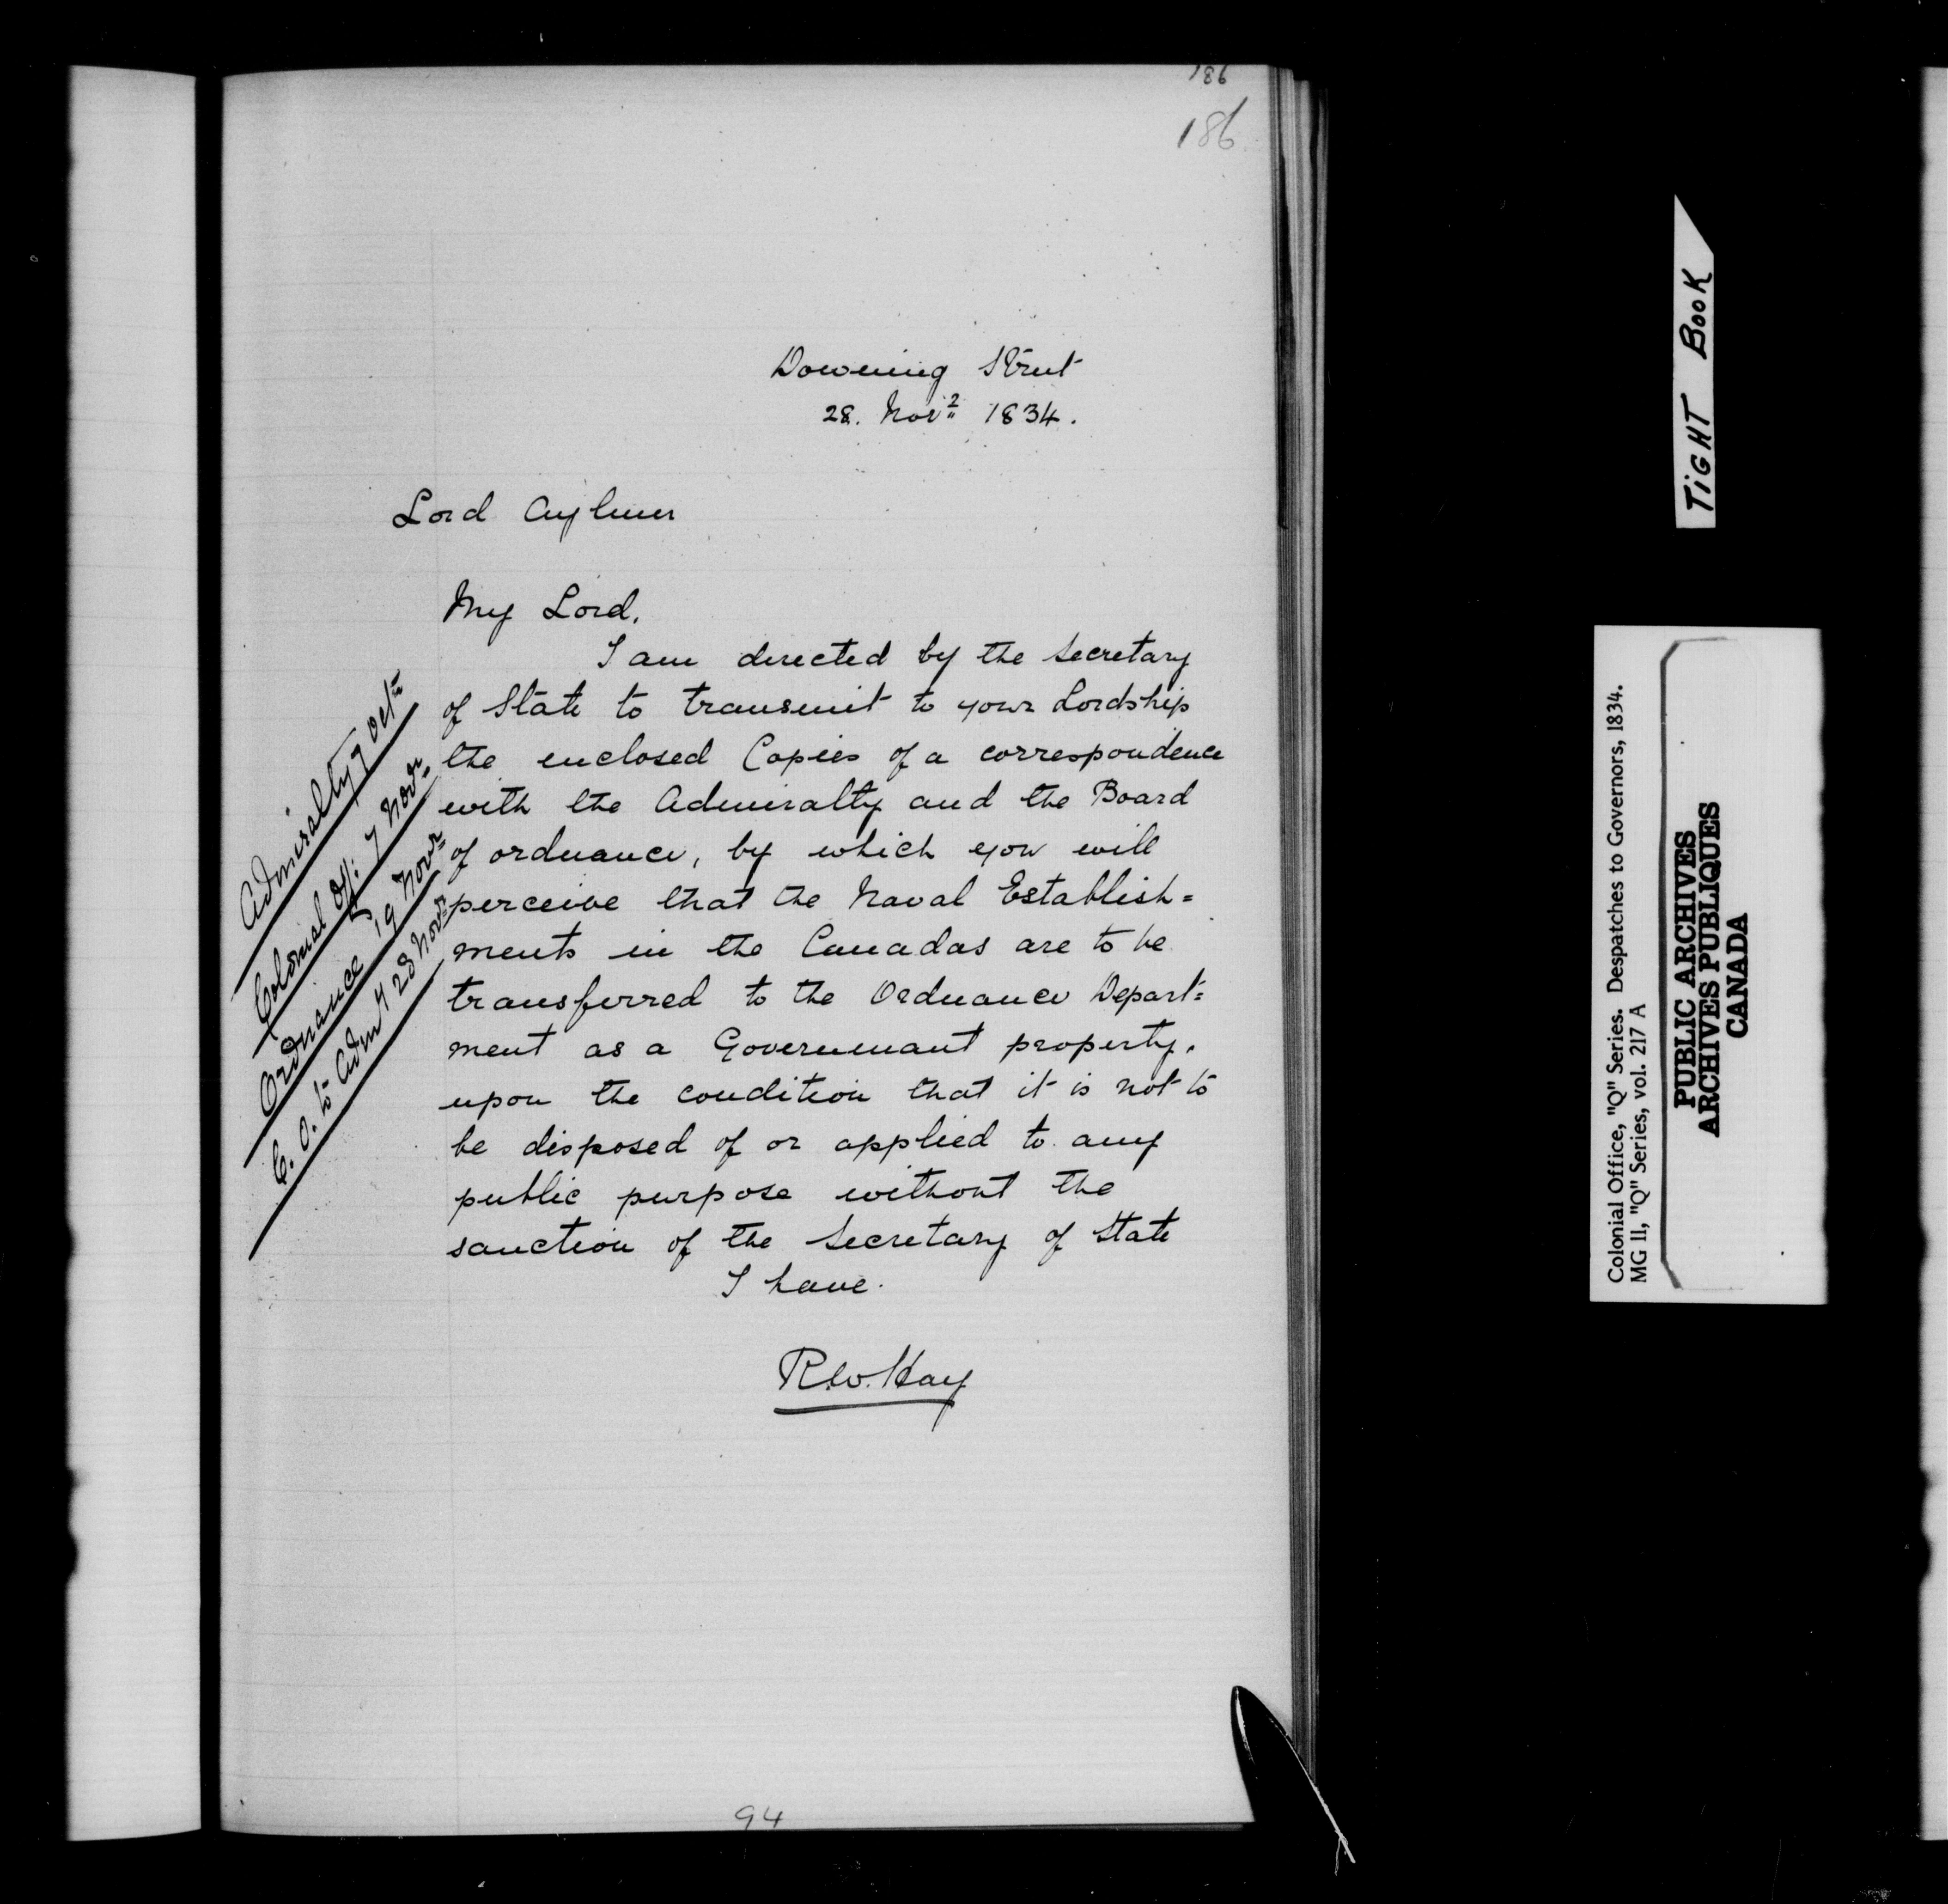 186
186
Downing Street
28. Novr 1834.
Lord Aylmer
My Lord,
I am directed by the Secretary
of State to transmit to your Lordship
the enclosed Copies of a correspondence
with the Admiralty and the Board
of ordnance, by which you will
perceive that the Naval Establish=
ments in the Canadas are to be
transferred to the Ordnance Depart=
ment as a Governmant property,
upon the condition that it is not to
be disposed of or applied to any
public purpose without the
sanction of the Secretary of State
I have.
R.W. Hay
Admiralty 7 Octr
Colonial Off: 7 Novr
Ordnance 19 Novr
C. O. to Admy 28 Novr
94
TIGHT BOOK
Colonial Office, "Q" Series. Despatches to Governors, 1834.
MG II, "Q" Series, vol. 217 A
PUBLIC ARCHIVES
ARCHIVES PUBLIQUES
CANADA